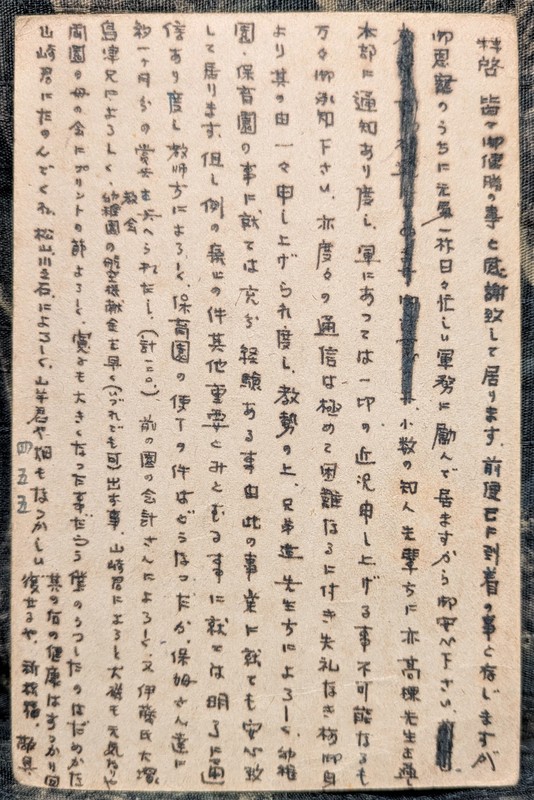 拝啓 皆々御健勝の事と感謝致して居ります。前便已に到着の事と存じますが
御恩寵のうちに元気一杯日々忙しい軍務に励んで居ますから御安心下さい。
小数の知人先輩方に亦高棟先生
本部に通知あり度し、軍にあっては一切の近況申し上げる事不可能なるも
万々御承知下さい。亦度々の通信は極めて困難なるに付き失礼なき様御自
より其の由一々申し上げられ度し、教勢の上、兄弟達先生方によろしく、幼稚
園・保育園の事に就ては充分経験ある事由此の事業に就ても安心致
して居ります。但し例の廃止の件其他重要とみとむる事に就ては明らに通
信あり度し教師方によろしく、保育園の使丁の件はどうなったか、保姆さん達に
約一ヶ月分の賞与を与へられたし、(計一二〇) 前の園の会計さんによろしく、又伊藤氏大
島津兄によろしく、教会 幼稚園の航空機献金を早く(いづれでも可)出す事、山崎君によると犬猫も元気なりや
両園の母の会にプリントの節よろしく、寛子も大きくなった事だらう 僕のうつしたのはだめかだ
山崎君にたのんでくれ 松山 立石によろしく、山羊君や畑もなつかしい
四五五
其の后の健康はすっかり回
復せるや、祈祝福、敬具